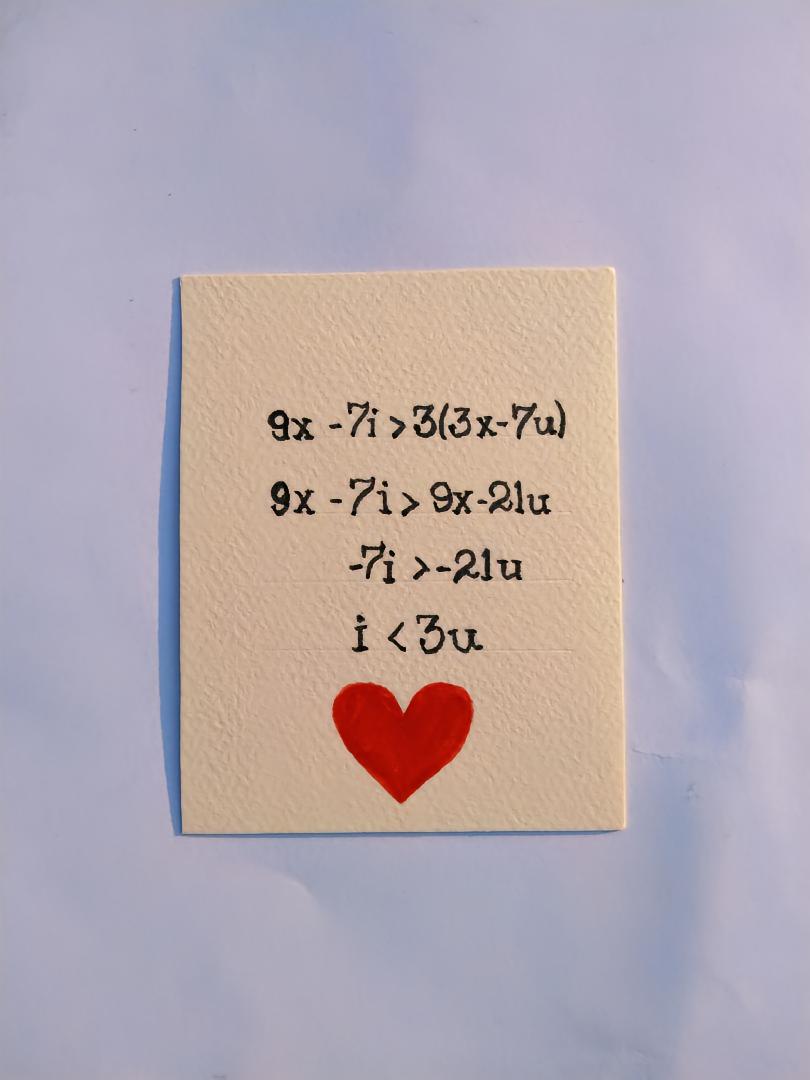 9x -7i > 3(3x-7u)
9x -7i > 9x-21u
-7i > -21u
i < 3u